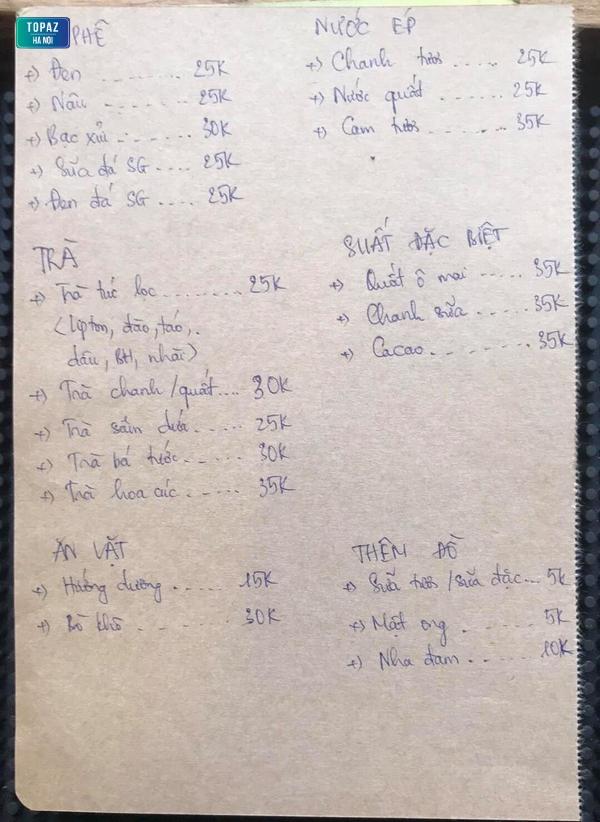 TOPAZ
HÀ NỘI
PHÊ
+) Đen ........ 25K
+) Nâu ........ 25K
+) Bạc xỉu ........ 30K
+) Sữa đá SG .... 25K
+) Đen đá SG .... 25K
TRÀ
+) Trà túi lọc ........ 25K
(lipton, đào, táo,
dâu, BH, nhài)
+) Trà chanh/quất .... 30K
+) Trà sâm dứa ...... 25K
+) Trà bá tước ...... 30K
+) Trà hoa cúc ...... 35K
ĂN VẶT
+) Hướng dương ...... 15K
+) Bò khô ........ 30K
NƯỚC ÉP
+) Chanh tươi ..... 25K
+) Nước quất ...... 25K
+) Cam tươi ...... 35K
SUẤT ĐẶC BIỆT
+) Quất ô mai ..... 35K
+) Chanh sữa ..... 35K
+) Cacao ........ 35K
THÊM ĐỒ
+) Sữa tươi/sữa đặc ... 5K
+) Mật ong ...... 5K
+) Nha đam ..... 10K